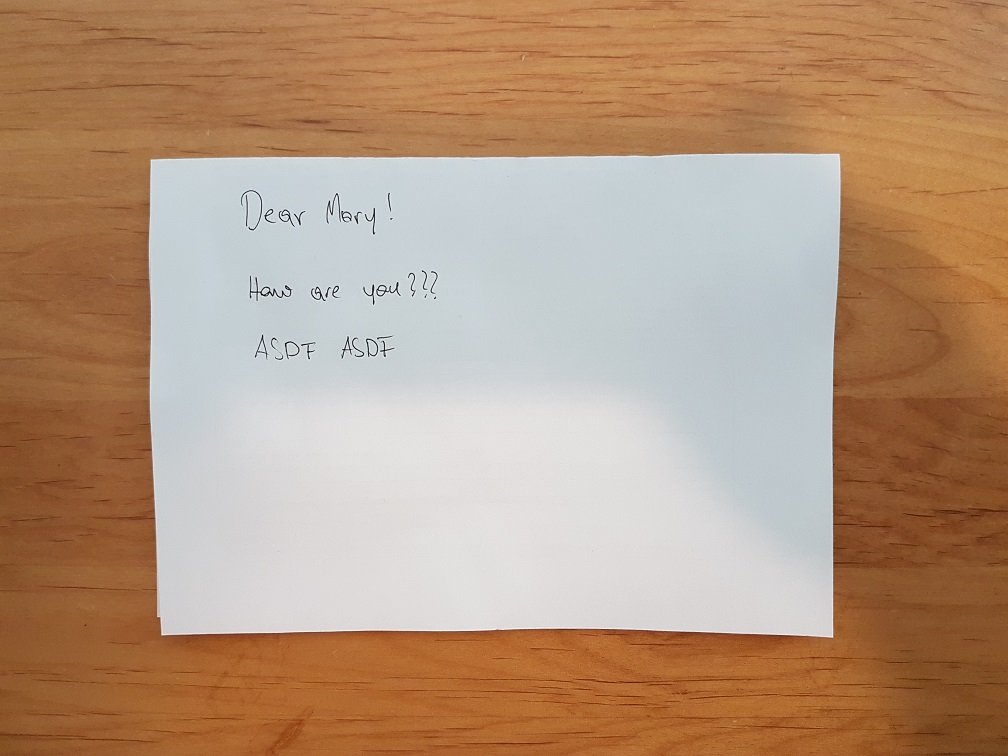 Dear Mary!
How are you???
ASDF ASDF